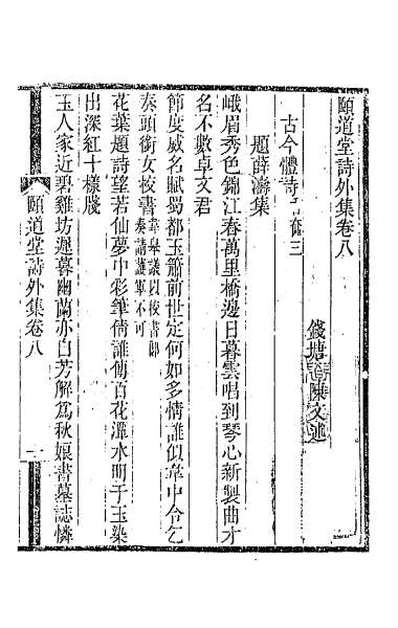 頤道堂詩外集卷八
錢塘陳文述
古今體詩
題薛濤集
峨眉秀色錦江春萬里橋邊日暮雲唱到琴心新製曲才
名不數卓文君
節度威名賦蜀都玉簫前世定何如多情誰似韋中令乞
奏頭銜女校書韋皋議以校書郎奏請護軍不可
花葉題詩望若仙夢中彩筆倩誰傳百花潭水明于玉染
出深紅十樣牋
玉人家近碧雞坊遲暮幽蘭亦自芳解爲秋娘書墓誌憐
頤道堂詩外集卷八
一